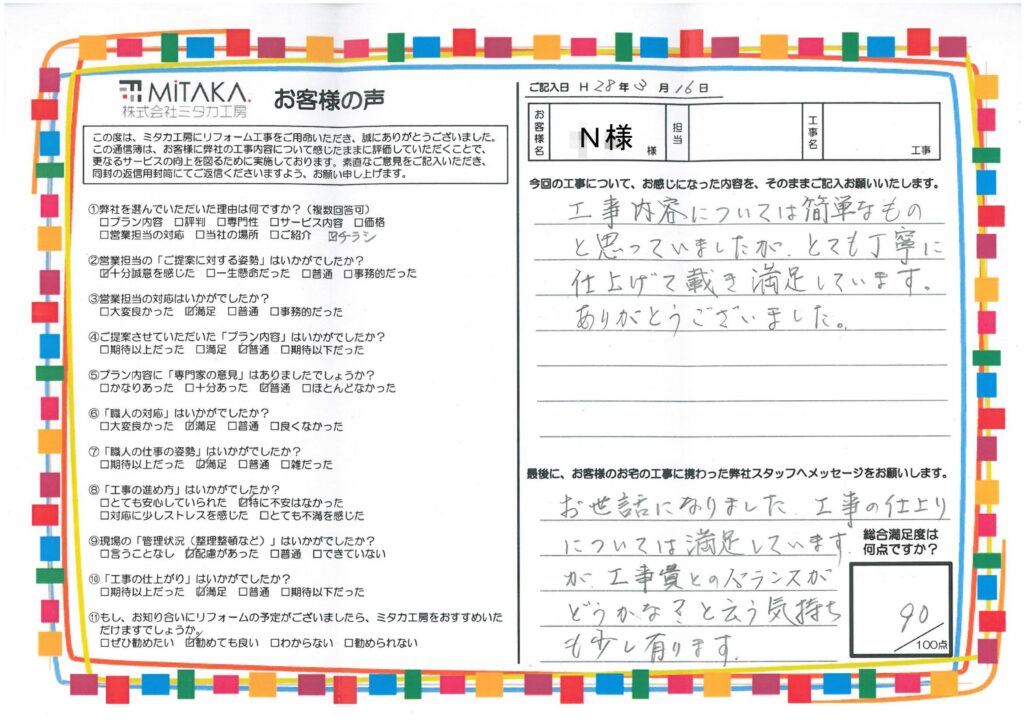 MiTAKA.
株式会社ミタカ工房
お客様の声
この度は、ミタカ工房にリフォーム工事をご用命いただき、誠にありがとうございました。
この通信簿は、お客様に弊社の工事内容について感じたままに評価していただくことで、
更なるサービスの向上を図るために実施しております。素直なご意見をご記入いただき、
同封の返信用封筒にてご返信くださいますよう、お願い申し上げます。
①弊社を選んでいただいた理由は何ですか?(複数回答可)
□プラン内容 □評判 □専門性 □サービス内容 □価格
□営業担当の対応 □当社の場所 □ご紹介 ☑チラシ
②営業担当の「ご提案に対する姿勢」はいかがでしたか?
☑十分誠意を感じた □一生懸命だった □普通 □事務的だった
③営業担当の対応はいかがでしたか?
□大変良かった ☑満足 □普通 □事務的だった
④ご提案させていただいた「プラン内容」はいかがでしたか?
□期待以上だった □満足 ☑普通 □期待以下だった
⑤プラン内容に「専門家の意見」はありましたでしょうか?
□かなりあった □十分あった ☑普通 □ほとんどなかった
⑥「職人の対応」はいかがでしたか?
□大変良かった ☑満足 □普通 □良くなかった
⑦「職人の仕事の姿勢」はいかがでしたか?
□期待以上だった ☑満足 □普通 □雑だった
⑧「工事の進め方」はいかがでしたか?
□とても安心していられた ☑特に不安はなかった
□対応に少しストレスを感じた □とても不満を感じた
⑨現場の「管理状況(整理整頓など)」はいかがでしたか?
□言うことなし ☑配慮があった □普通 □できていない
⑩「工事の仕上がり」はいかがでしたか?
□期待以上だった ☑満足 □普通 □期待以下だった
⑪もし、お知り合いにリフォームの予定がございましたら、ミタカ工房をおすすめいた
だけますでしょうか。
□ぜひ勧めたい ☑勧めても良い □わからない □勧められない
ご記入日 H 28年 3 月 16 日
お客様名 N様 様 担当 工事名 工事
今回の工事について、お感じになった内容を、そのままご記入お願いいたします。
工事内容については簡単なもの
と思っていましたが、とても丁寧に
仕上げて載き満足しています。
ありがとうございました。
最後に、お客様のお宅の工事に携わった弊社スタッフへメッセージをお願いします。
お世話になりました。工事の仕上り
については満足しています
が、工事費とのバランスが
どうかな?と云う気持ち
も少し有ります。
総合満足度は
何点ですか?
90
/100点